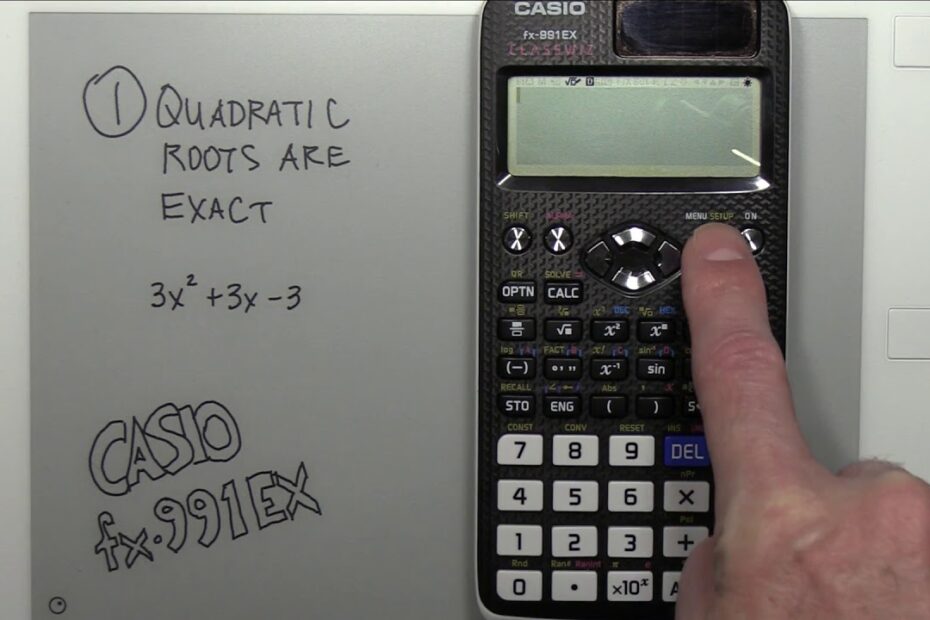 ① QUADRATIC
ROOTS ARE
EXACT
3x² + 3x - 3
CASIO
fx-991EX
CASIO
fx-991EX
CLASSWIZ
SHIFT ALPHA MENU SETUP ON
QR SOLVE =
OPTN CALC
x³ DEC HEX
x² x■
log FACT x! sin⁻¹
(−) x⁻¹ sin
RECALL Abs
STO ENG ( )
CONST CONV RESET INS
7 8 9 DEL
nPr
4 5 6 ×
Pol
1 2 3 +
Rnd Ran# RanInt π e
0 • ×10ˣ